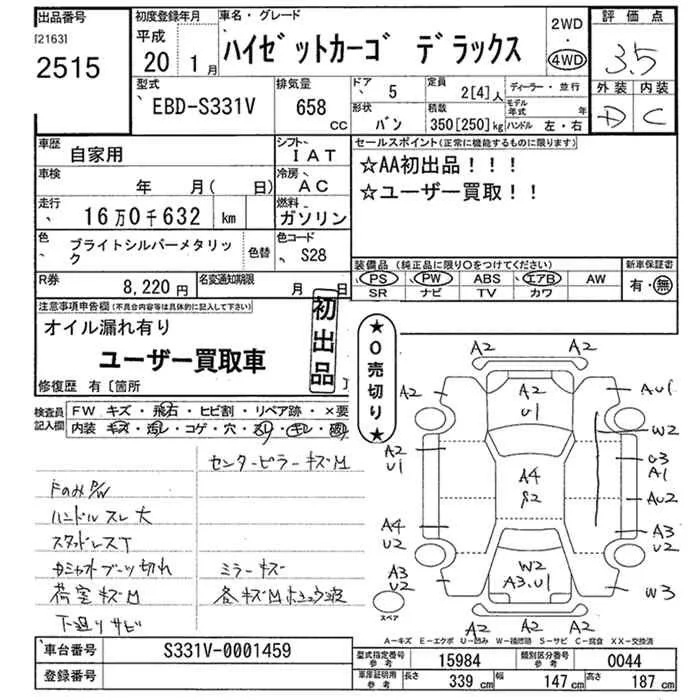 出品番号
[2163]
2515
初度登録年月
平成
20 1月
車名・グレード
ハイゼットカーゴ デラックス
2WD
・
4WD
評価点
3.5
外装 内装
D C
型式
EBD-S331V
排気量
658 CC
ドア
5
定員
2[4]人
ディーラー・並行
形状
バン
積数
350[250]kg
モデル年式 年
ハンドル 左・右
車歴
自家用
シフト
IAT
車検
年 月( 日)
冷房
AC
走行
16万0千632 km
燃料
ガソリン
色
ブライトシルバーメタリック
色替
色コード
S28
R券
8,220円
名変通知期限
月 日
セールスポイント(正常に機能するものに限ります)
☆AA初出品!!!
☆ユーザー買取!!
装備品(純正品に限り○をつけてください)
PS PW ABS エアB AW
SR ナビ TV カワ
新車保証書
有・無
注意事項申告欄(不具合内容等は具体的に記入して下さい)
オイル漏れ有り
ユーザー買取車
初出品
修復歴 有〔箇所 〕
★0売切り★
検査員記入欄
FW キズ・飛石・ヒビ割・リペア跡・×要
内装 キズ・コゲ・穴・スレ・キレ
センターピラーキズM
ドのみP/W
ハンドルスレ大
スタッドレスT
カムシャフトブーツ切れ
ミラーキズ
荷室キズM
各キズM
下廻りサビ
A2 A2
A2 A2 U1 AU1
W2
A2 U1 U3 A1
A4 S2 AU2
A4 U2 A3 U2
A3 U2 W2 A3.U1 W3
A2 A2
スペア
A-キズ E-エクボ U-凹み W-補修跡 S-サビ C-腐食 XX-交換済
車台番号
S331V-0001459
登録番号
型式指定番号 参考
15984
類別区分番号 参考
0044
車庫証明用 参考
長さ 339 cm 幅 147 cm 高さ 187 cm